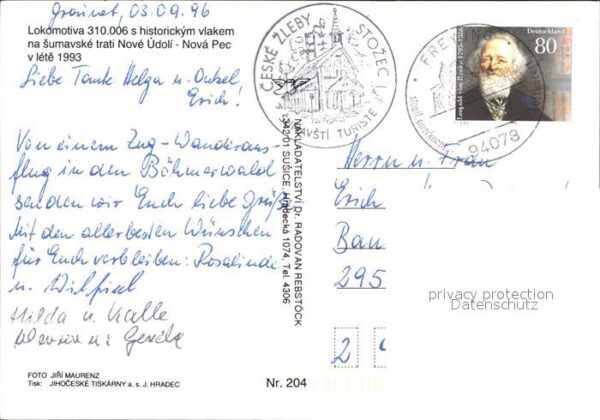 Grainet, 03.09.96
Lokomotiva 310.006 s historickým vlakem
na šumavské trati Nové Údolí - Nová Pec
v létě 1993
Liebe Tante Helga u. Onkel
Erich!
Von einem Zug-Wanderaus-
flug in den Böhmerwald
senden wir Euch liebe Grüße
Mit den allerbesten Wünschen
für Euch verbleiben: Rosalinde
u. Wilfried
Hilda u. Kalle
u. Gerda
FOTO JIŘÍ MAURENZ
Tisk: JIHOČESKÉ TISKÁRNY a. s. J. HRADEC
Nr. 204
NAKLADATELSTVÍ Dr. RADOVAN REBSTÖCK
342/01 SUŠICE, Hrádecká 1074, Tel. 4306
ČESKÉ ŽLEBY STOŽEC
Deutschland
80
Leopold von Ranke 1795-1886
FREYUNG
94078
Herrn u. Frau
Erich
Bau
295
2
privacy protection
Datenschutz